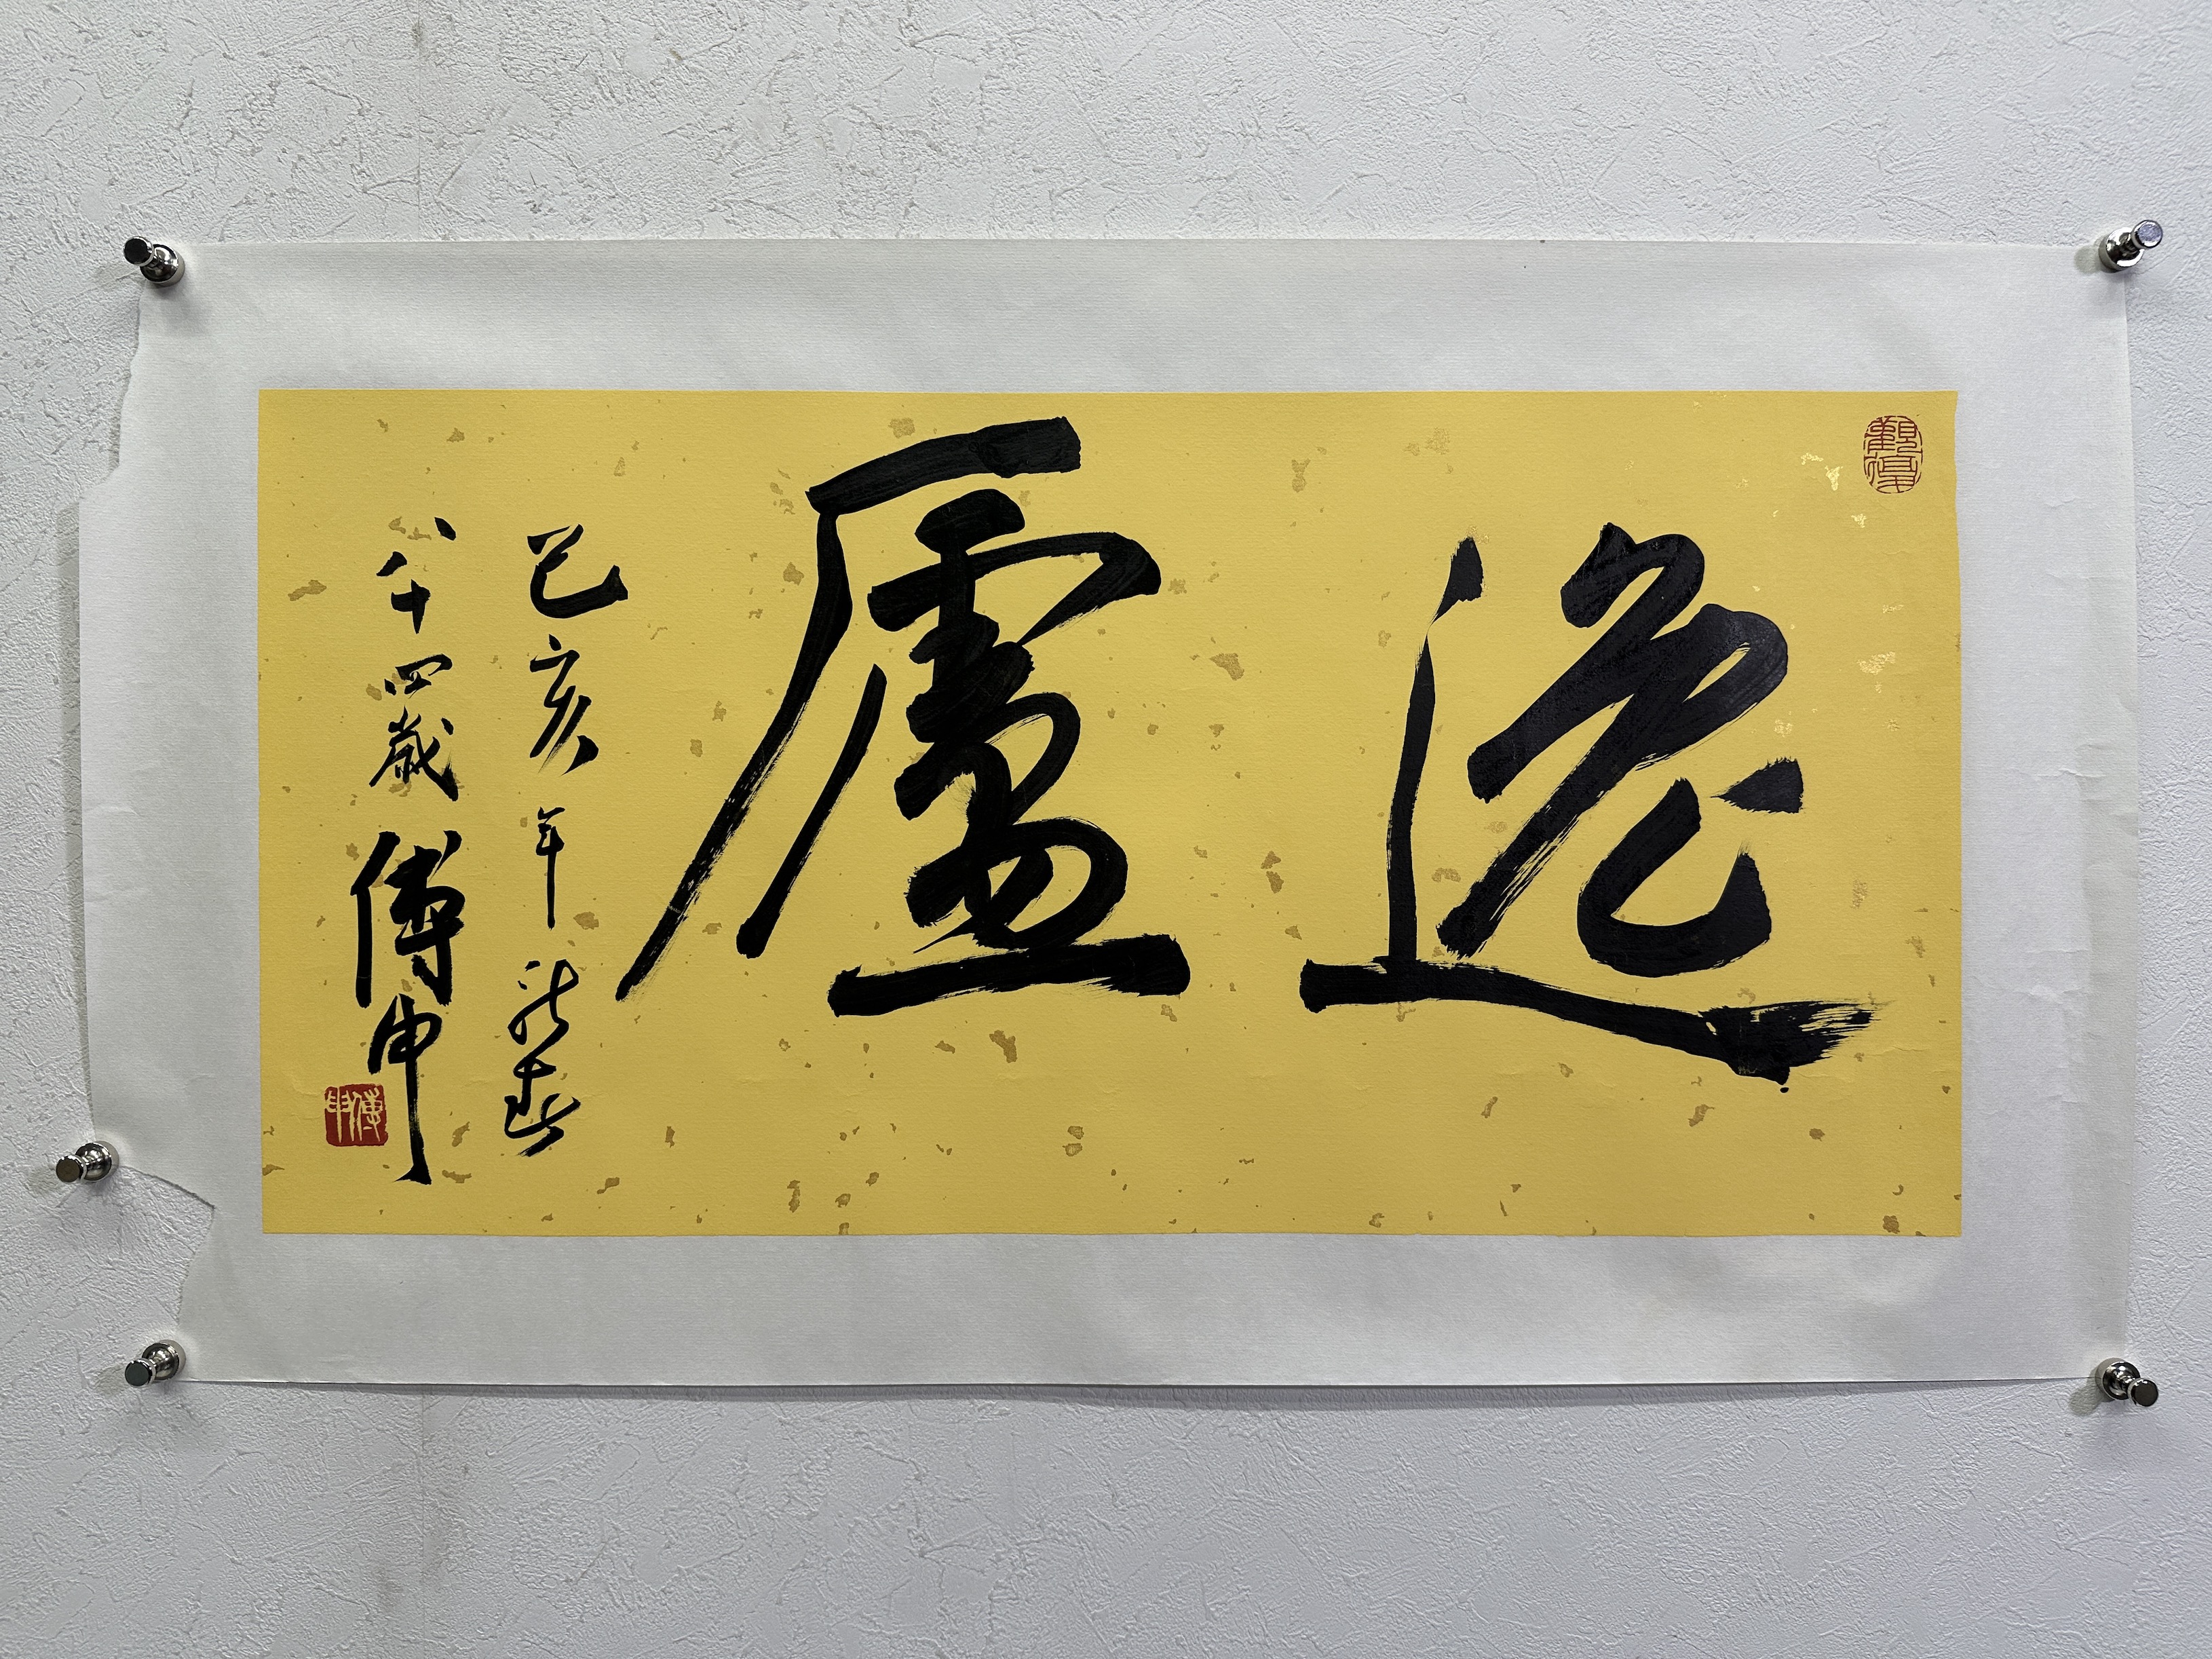 逸廬
己亥年新春
八十四歲傅申
傅申